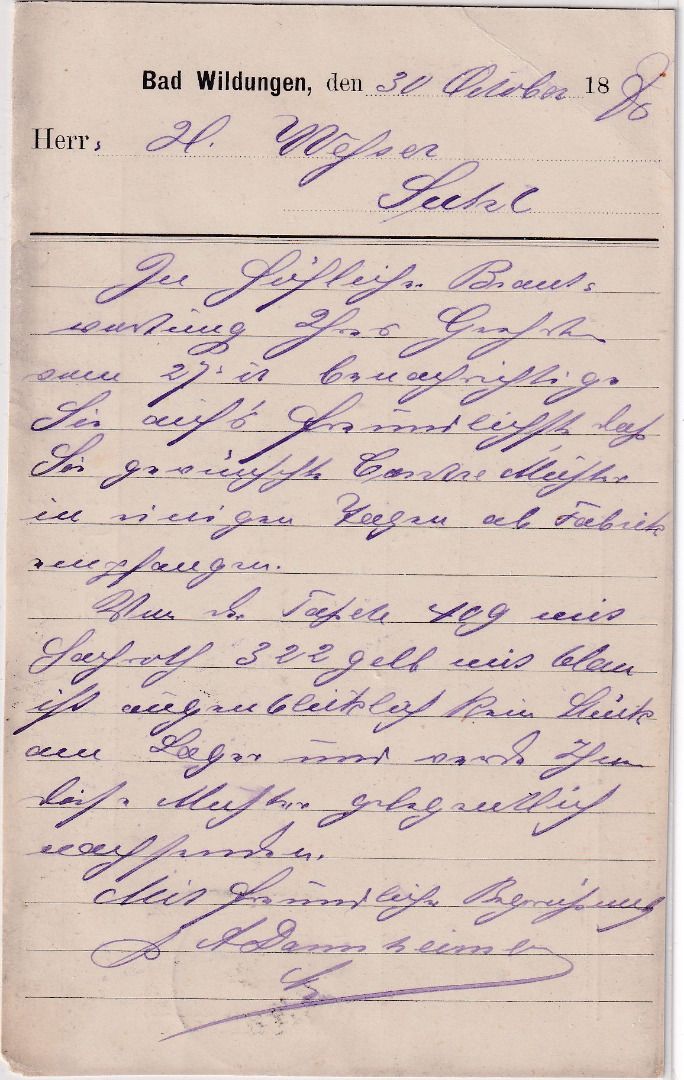 Bad Wildungen, den 30 October 18
Herr, H.
In höflicher Beant-
wortung Ihres Geehrten
vom 27. benachrichtige
Sie auf's freundlichste daß
Sie gewünschte Muster
in einigen Tagen ab Fabrik
empfangen.
Von der Tapete 409 mit
322 gelb mit blau
ist augenblicklich kein Stück
am Lager und werde Ihnen
diese Muster gelegentlich
nachsenden.
Mit freundlicher Begrüßung